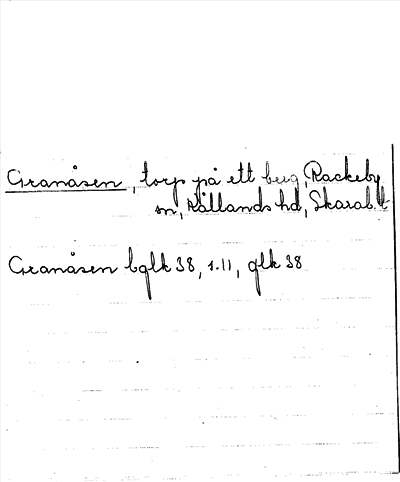 Granåsen, torp på ett berg, Rackeby
sn, Kållands hd, Skarab. l.
Granåsen bglk 38, 1.11, glk 38